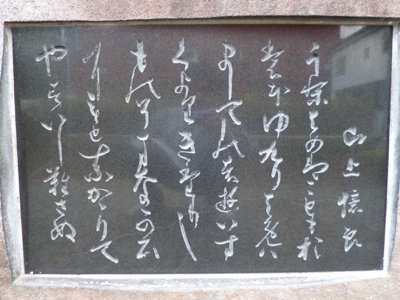 山上憶良
うりはめはこともおも
ほゆくりはめは
ましてしぬはゆいつ
くよりきたりし
ものそまなかひ
にもとなかかりて
やすいし難さぬ